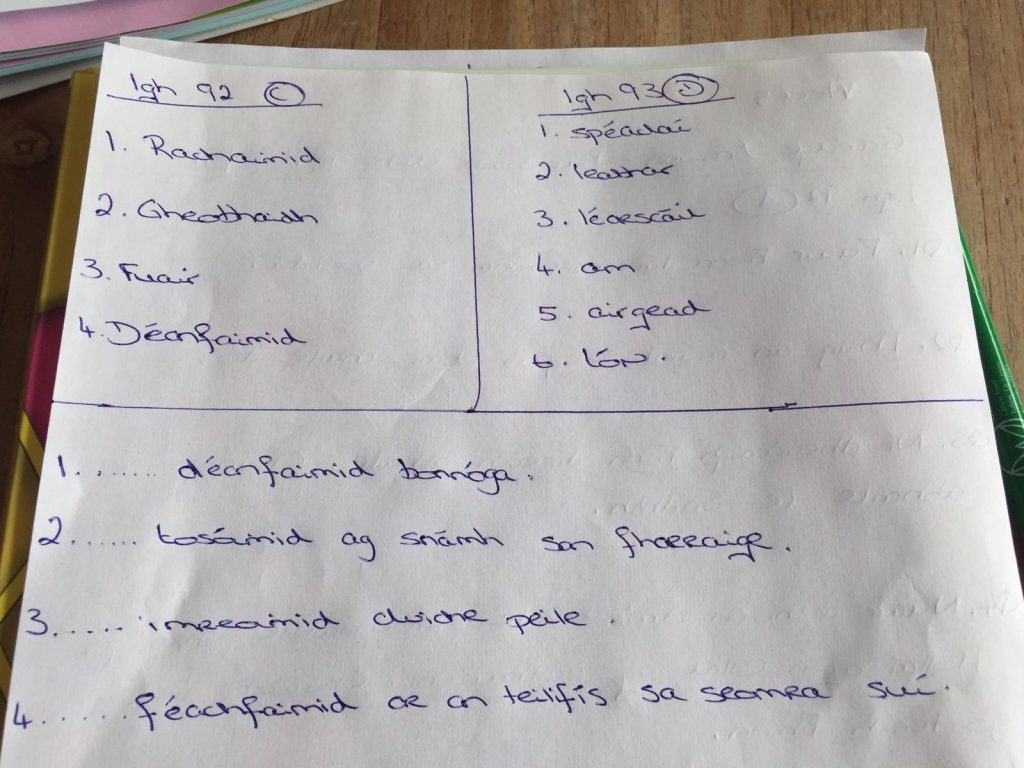 lgh 92 C
1. Rachaimid
2. Gheobhaidh
3. Fuair
4. Déanfaimid
lgh 93 D
1. spéaclaí
2. leabhar
3. léarscáil
4. am
5. airgead
6. lón.
1....... déanfaimid bonnóga.
2...... tosáimid ag snámh san fharraige.
3..... imreaimid cluiche peile.
4..... féachfaimid ar an teilifís sa seomra suí.